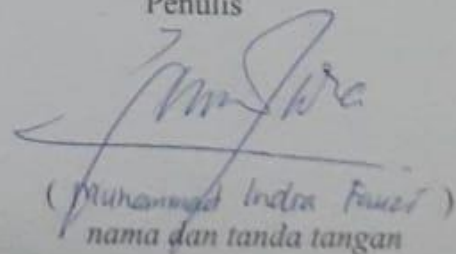 Penulis
( Muhammad Indra Fauzi )
nama dan tanda tangan